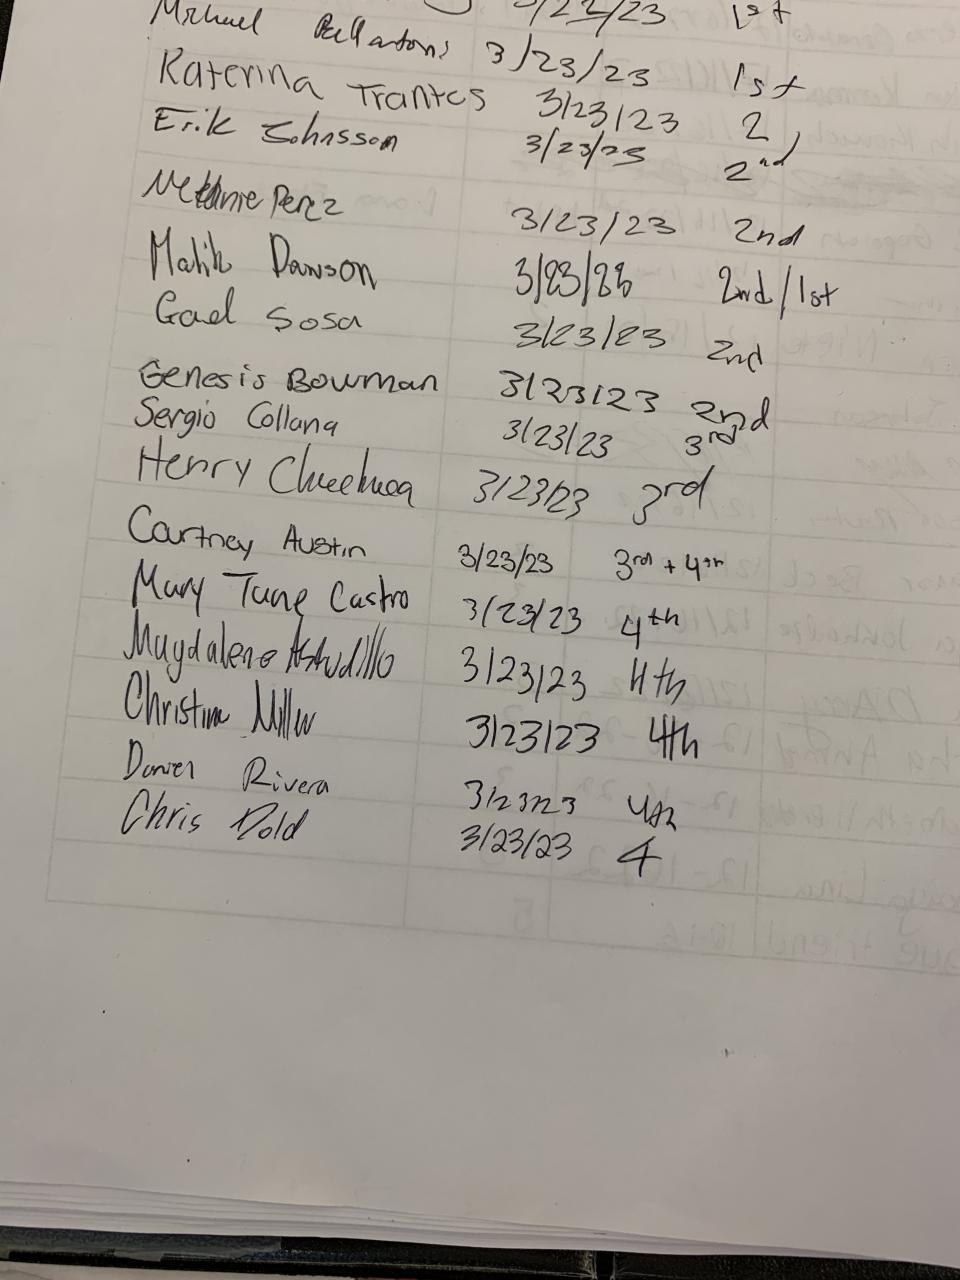 3/22/23 1st
Michael 3/23/23 1st
Katerina Trantes 3/23/23 2
Erik Johnsson 3/23/23 2nd
Perez 3/23/23 2nd
Malik Dawson 3/23/23 2nd/1st
Gael Sosa 3/23/23 2nd
Genesis Bowman 3/23/23 2nd
Sergio Collana 3/23/23 3rd
Henry 3/23/23 3rd
Courtney Austin 3/23/23 3rd + 4th
Mary Tung Castro 3/23/23 4th
Magdaleno Astudillo 3/23/23 4th
Christina Miller 3/23/23 4th
Daniel Rivera 3/23/23 4th
Chris Dold 3/23/23 4